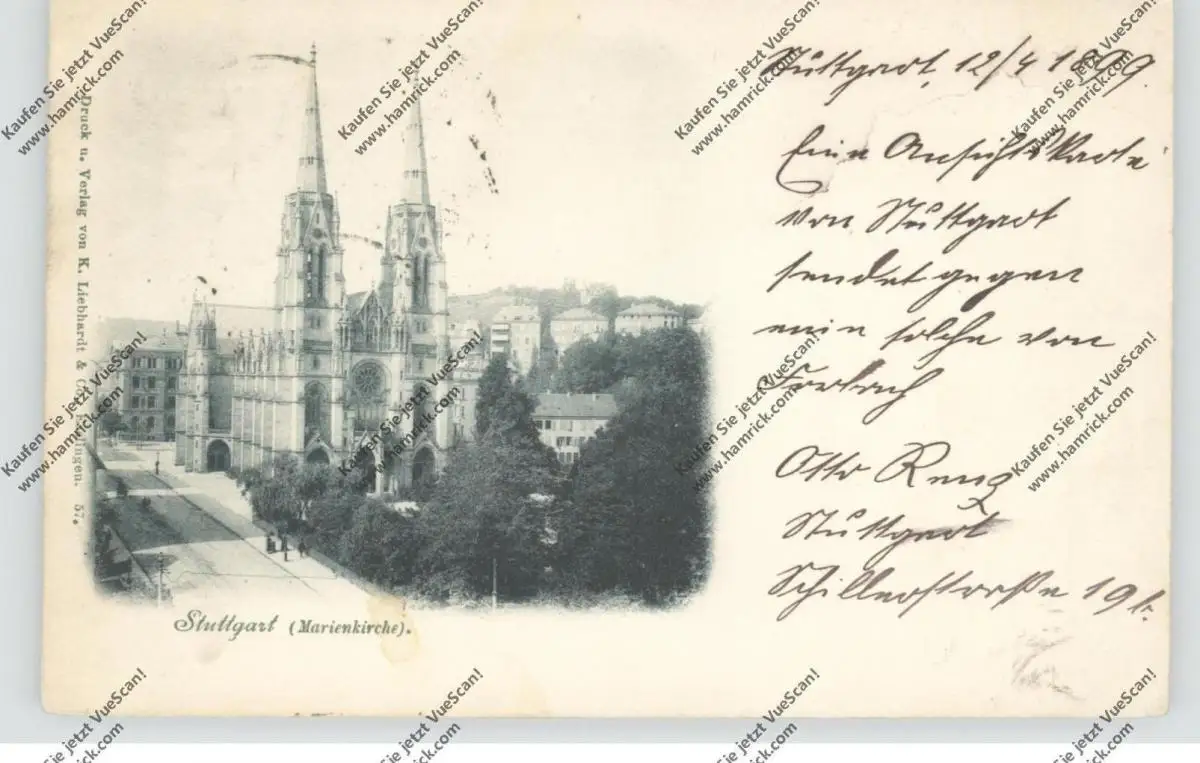 Stuttgart, 12/4 1899.
Eine Ansichtskarte
von Stuttgart
sendet gegen
eine solche von
Otto Renz
Stuttgart
Schillerstrasse 19
Druck u. Verlag von K. Liebhardt & 57.
Stuttgart (Marienkirche).
Kaufen Sie jetzt VueScan!
(www.hamrick.com)
Kaufen Sie jetzt VueScan!
(www.hamrick.com)
Kaufen Sie jetzt VueScan!
(www.hamrick.com)
Kaufen Sie jetzt VueScan!
(www.hamrick.com)
Kaufen Sie jetzt VueScan!
(www.hamrick.com)
Kaufen Sie jetzt VueScan!
(www.hamrick.com)
Kaufen Sie jetzt VueScan!
(www.hamrick.com)
Kaufen Sie jetzt VueScan!
(www.hamrick.com)
Kaufen Sie jetzt VueScan!
.hamrick.com)
Kaufen Sie jetzt VueScan!
.hamrick.com)
Kaufen Sie jetzt VueScan!
.hamrick.com)
Kaufen Sie jetzt VueScan!
.hamrick.com)